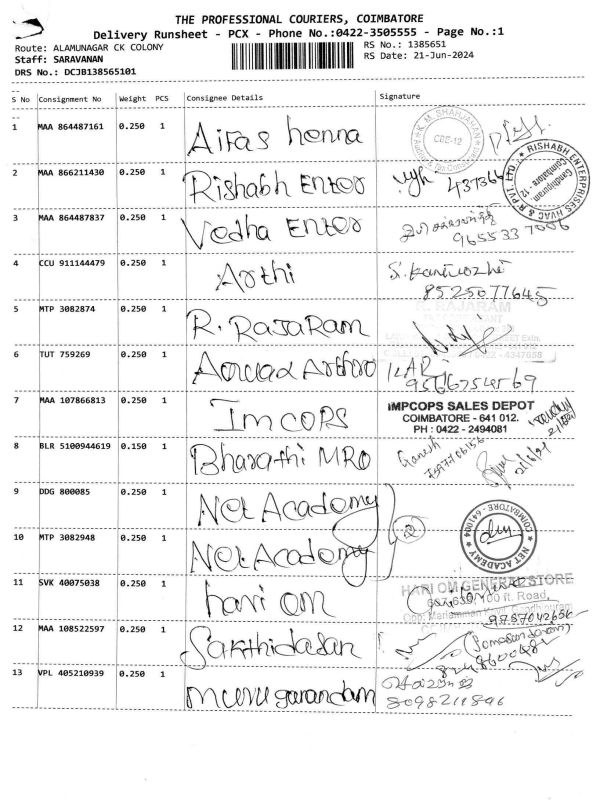 THE PROFESSIONAL COURIERS, COIMBATORE
Delivery Runsheet - PCX - Phone No.:0422-3505555 - Page No.:1
Route: ALAMUNAGAR CK COLONY
RS No.: 1385651
Staff: SARAVANAN
RS Date: 21-Jun-2024
DRS No.: DCJB138565101
S No Consignment No Weight PCS Consignee Details Signature
1 MAA 864487161 0.250 1 Airas henna
K M SHAHJAHAN
CBE-12
2 MAA 866211430 0.250 1 Rishabh Enter
RISHABH ENTERPRISES HVAC & R PVT. LTD.
Gandhipuram
Coimbatore - 12.
3 MAA 864487837 0.250 1 Vedha Enter
4 CCU 911144479 0.250 1 Arthi
8525077645
5 MTP 3082874 0.250 1 R. RAJARAM
R. RAJARAM
0422 - 4347658
6 TUT 759269 0.250 1
7 MAA 107866813 0.250 1 Imcops
IMPCOPS SALES DEPOT
COIMBATORE - 641 012.
PH : 0422 - 2494081
8 BLR 5100944619 0.150 1 Bharathi MRO
Ganesh
9 DDG 800085 0.250 1 Net Academy
2
NET ACADEMY
COIMBATORE - 641004
10 MTP 3082948 0.250 1 Net Academy
11 SVK 40075038 0.250 1 hari om
HARI OM GENERAL STORE
100 ft. Road,
9787042656
12 MAA 108522597 0.250 1 Sakthidasan
13 VPL 405210939 0.250 1 muruganandam
8098211896